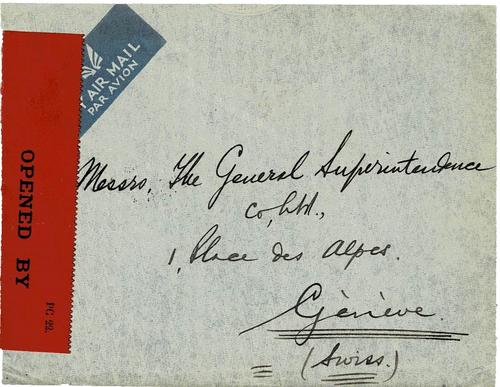 BY AIR MAIL
PAR AVION
OPENED BY
PC. 22.
Messrs. The General Superintendence
Co, Ltd.,
1, Place des Alpes.
Genève.
(Swiss.)